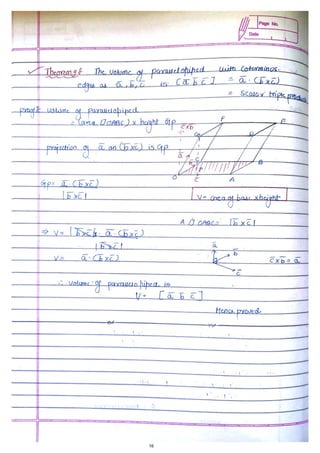 Page No.
Date
Theorem: The volume of parallelopiped with coterminos
edges as a̅, b̅, c̅ is [a̅ b̅ c̅] = a̅ · (b̅ × c̅)
= Scalar triple product
proof: volume of parallelopiped
= (area □ OABC) × height Gp
projection of a̅ on (b̅ × c̅) is Gp
Gp = a̅ · (b̅ × c̅)
|b̅ × c̅|
V = area of base × height
A □ OABC = |b̅ × c̅|
⇒ V = |b̅ × c̅| · a̅ · (b̅ × c̅)
|b̅ × c̅|
V = a̅ · (b̅ × c̅)
c̅ × b̅ = a̅
∴ volume of parallelopiped is
V = [a̅ b̅ c̅]
Hence proved
16